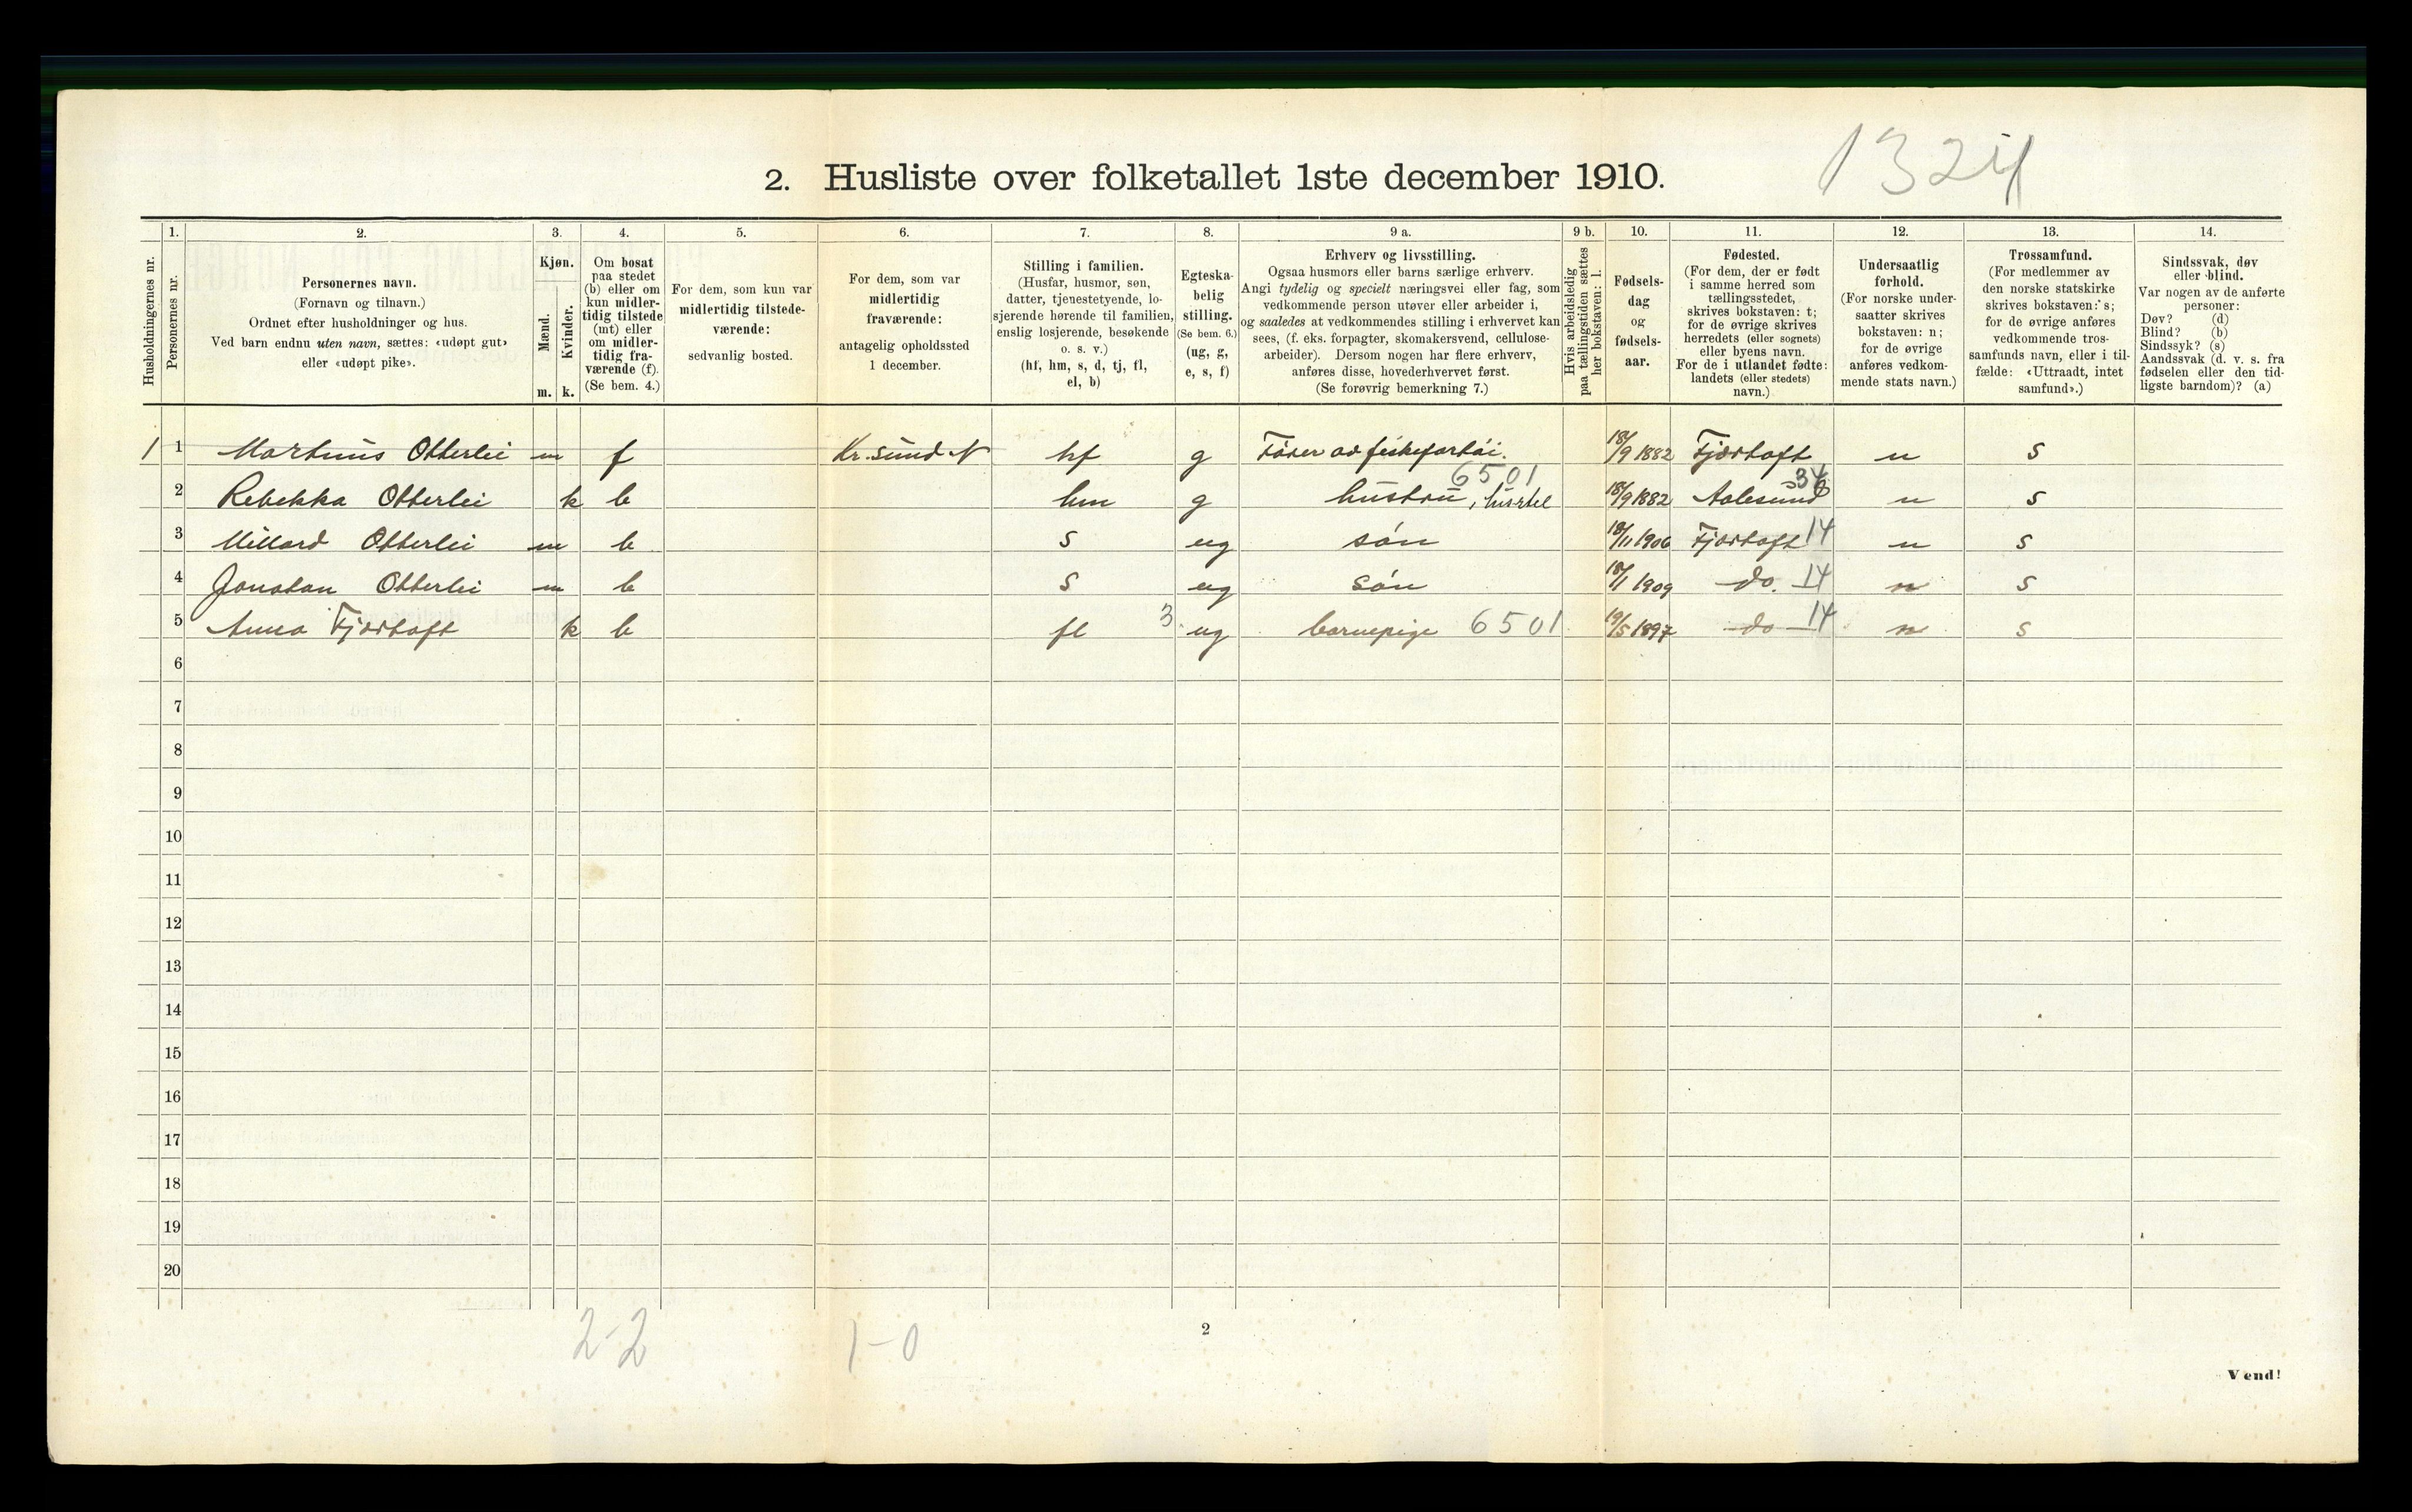 1324
2. Husliste over folketallet 1ste december 1910.
Husholdningernes nr.
1. Personernes nr.
2. Personernes navn.
(Fornavn og tilnavn.)
Ordnet efter husholdninger og hus.
Ved barn endnu uten navn, sættes: «udøpt gut»
eller «udøpt pike».
3. Kjøn.
Mænd. Kvinder.
m. k.
4. Om bosat
paa stedet
(b) eller om
kun midler-
tidig tilstede
(mt) eller
om midler-
tidig fra-
værende (f).
(Se bem. 4.)
5. For dem, som kun var
midlertidig tilstede-
værende:
sedvanlig bosted.
6. For dem, som var
midlertidig
fraværende:
antagelig opholdssted
1 december.
7. Stilling i familien.
(Husfar, husmor, søn,
datter, tjenestetyende, lo-
sjerende hørende til familien,
enslig losjerende, besøkende
o. s. v.)
(hf, hm, s, d, tj, fl,
el, b)
8. Egteska-
belig
stilling.
(Se bem. 6.)
(ug, g,
e, s, f)
9 a. Erhverv og livsstilling.
Ogsaa husmors eller barns særlige erhverv.
Angi tydelig og specielt næringsvei eller fag, som
vedkommende person utøver eller arbeider i,
og saaledes at vedkommendes stilling i erhvervet kan
sees, (f. eks. forpagter, skomakersvend, cellulose-
arbeider). Dersom nogen har flere erhverv,
anføres disse, hovederhvervet først.
(Se forøvrig bemerkning 7.)
9 b. Hvis arbeidsledig
paa tællingstiden sættes
her bokstaven: l.
10. Fødsels-
dag
og
fødsels-
aar.
11. Fødested.
(For dem, der er født
i samme herred som
tællingsstedet,
skrives bokstaven: t;
for de øvrige skrives
herredets (eller sognets)
eller byens navn.
For de i utlandet fødte:
landets (eller stedets)
navn.)
12. Undersaatlig
forhold.
(For norske under-
saatter skrives
bokstaven: n;
for de øvrige
anføres vedkom-
mende stats navn.)
13. Trossamfund.
(For medlemmer av
den norske statskirke
skrives bokstaven: s;
for de øvrige anføres
vedkommende tros-
samfunds navn, eller i til-
fælde: «Uttraadt, intet
samfund».)
14. Sindssvak, døv
eller blind.
Var nogen av de anførte
personer:
Døv? (d)
Blind? (b)
Sindssyk? (s)
Aandssvak (d. v. s. fra
fødselen eller den tid-
ligste barndom)? (a)
1 1 Martinus Otterlei m f Kr.sund N hf g Fører av fiskefartøi. 18/9 1882 Fjørtoft n s
2 Rebekka Otterlei k b hm g hustru, husstel 6501 18/9 1882 Aalesund 34 n s
3 Millard Otterlei m b s ug søn 18/11 1906 Fjørtoft 14 n s
4 Jonatan Otterlei m b s ug søn 18/1 1909 do. 14 n s
5 Anna Fjørtoft k b fl 3 ug barnepige 6501 19/5 1897 do 14 n s
6
7
8
9
10
11
12
13
14
15
16
17
18
19
20
2-2 1-0
2
Vend!